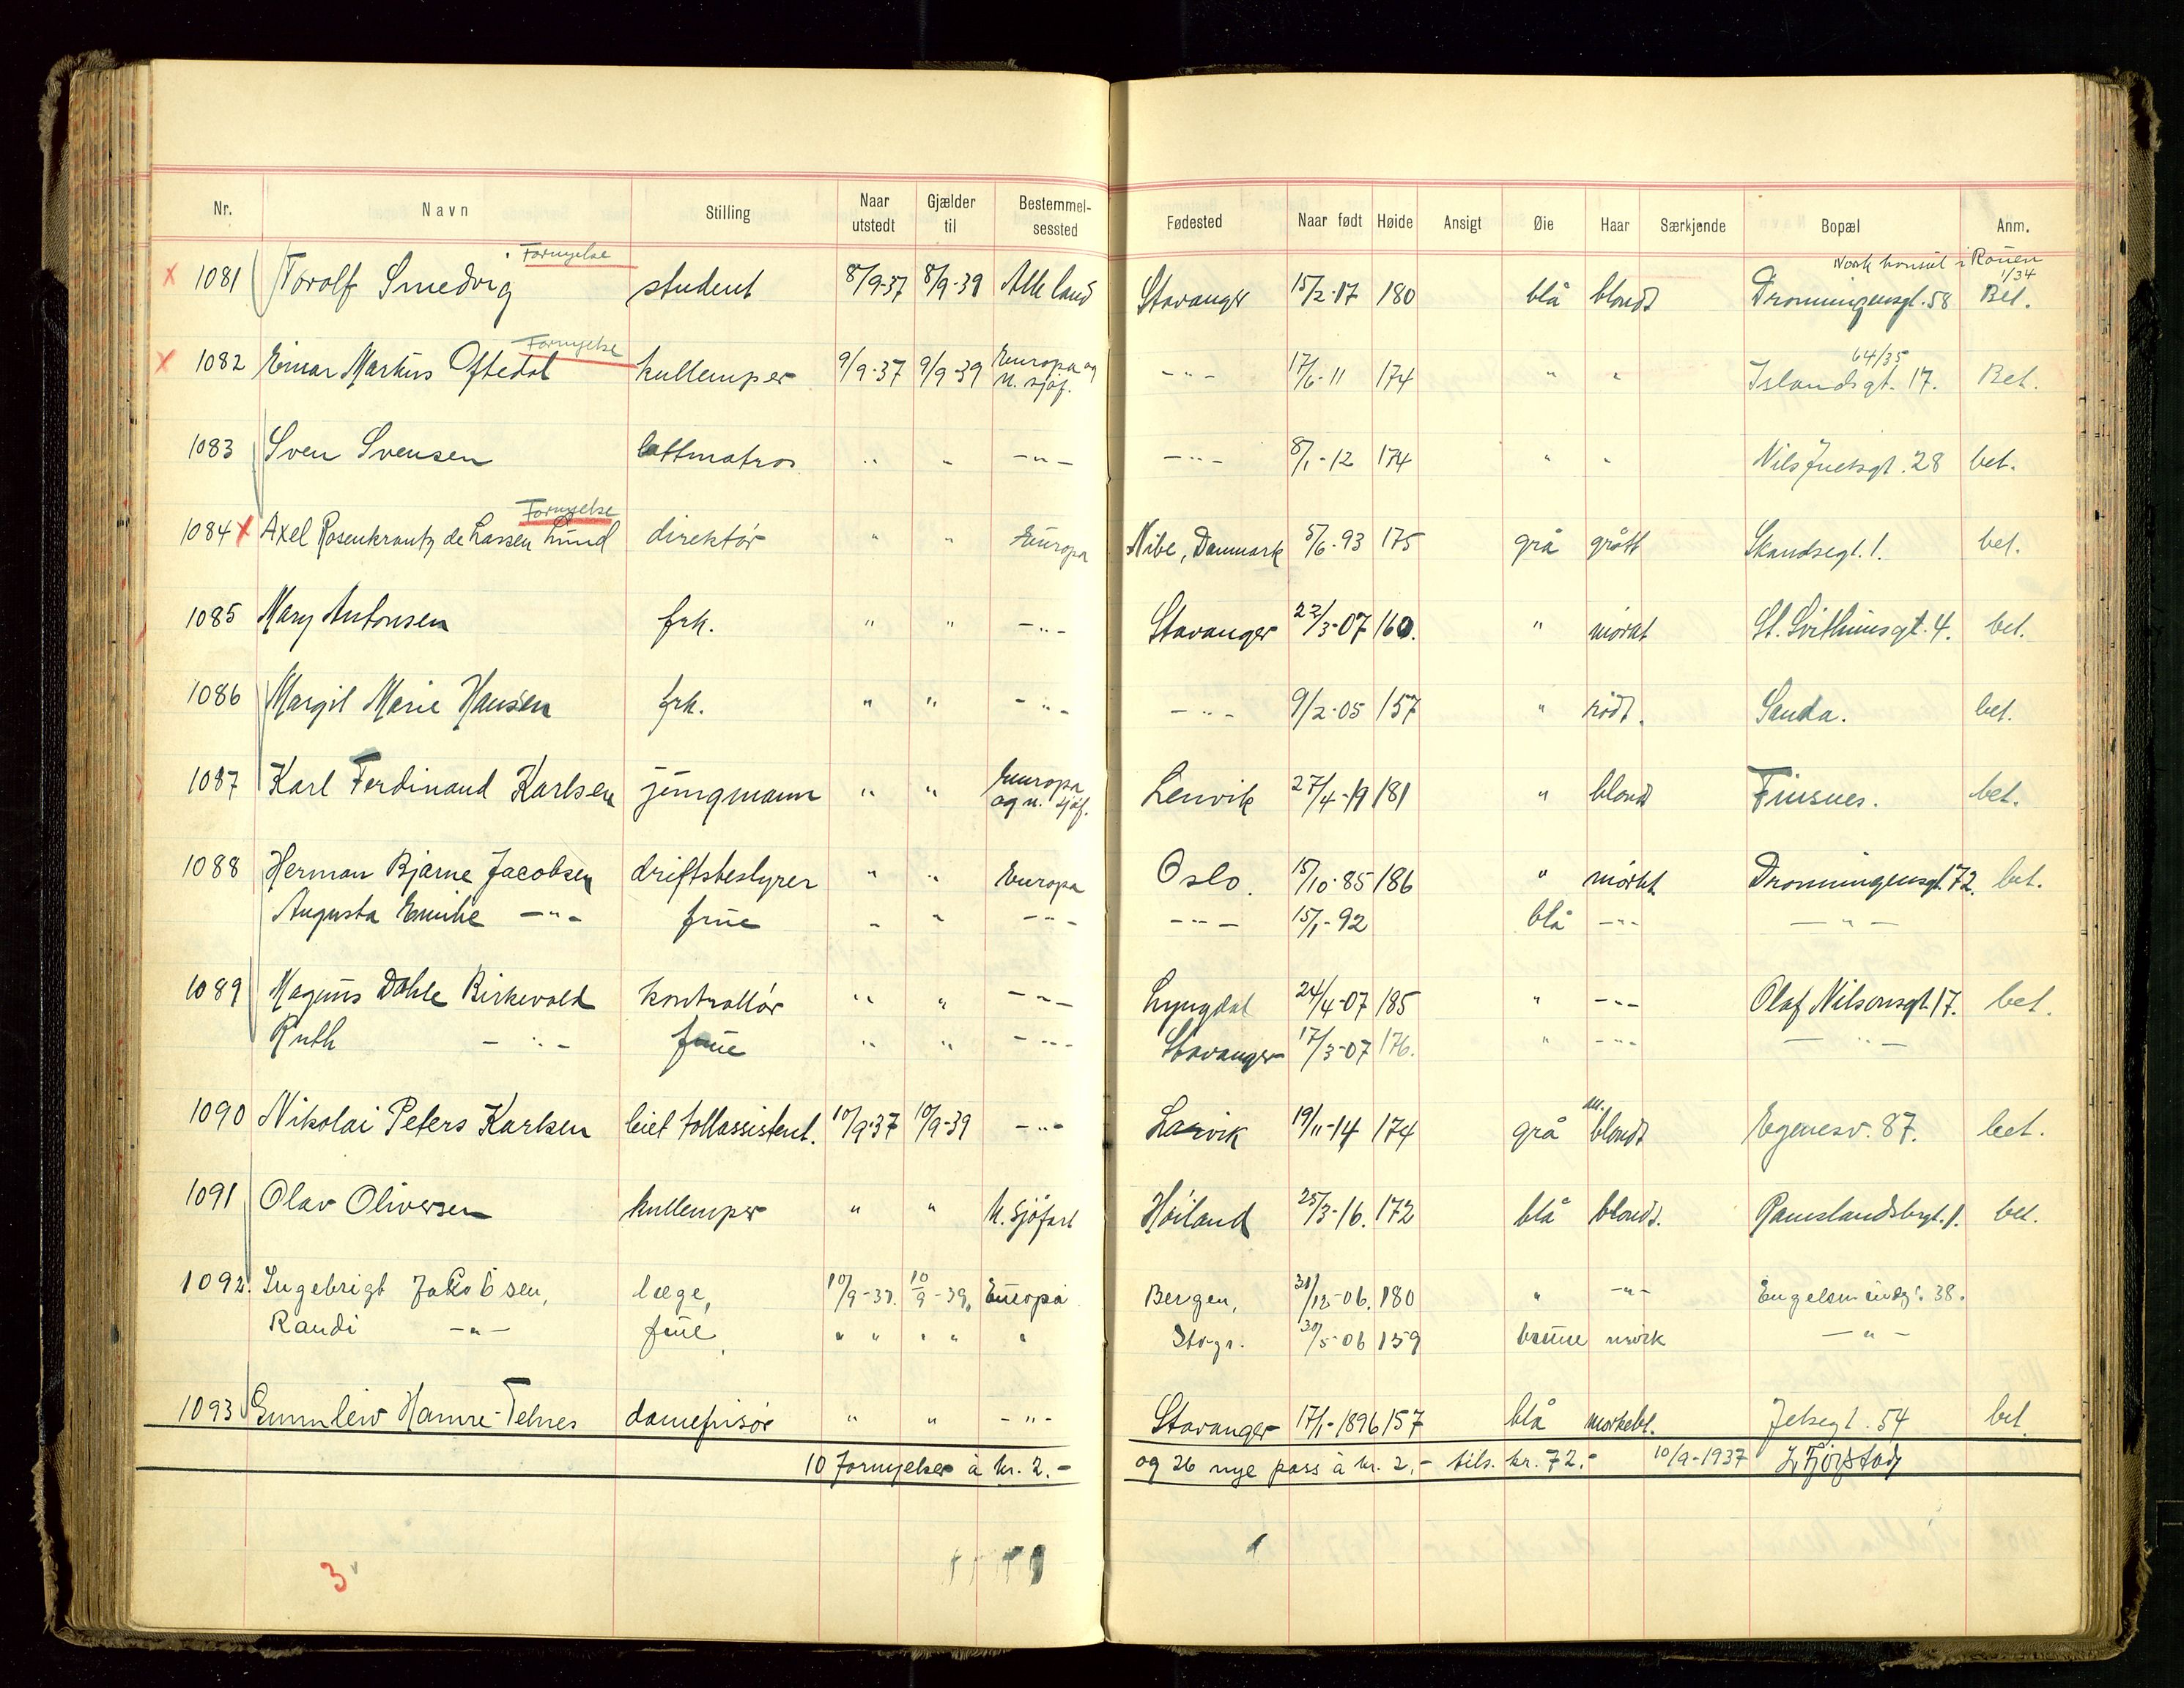 Nr. Navn Stilling Naar utstedt Gjælder til Bestemmelsessted Fødested Naar født Høide Ansigt Øie Haar Særkjende Bopæl Anm.
Fornyelse Norsk konsul i Rouen 1/34
x 1081 Torolf Smedvig student 8/9-37 8/9-39 Alle land Stavanger 15/2-17 180 blå blondt Dronningensgt. 58 Bet.
Fornyelse 64/35
x 1082 Einar Martius Oftedal kullemper 9/9-37 9/9-39 Europa og u. sjöf. -"- 17/6-11 174 " " Islandsgt. 17. Bet.
1083 Sven Svensen lettmatros " " -"- -"- 8/1-12 174 " " Nils Juelsgt. 28 bet.
Fornyelse
1084 x Axel Rosenkrantz de Lassen Lund direktör " " Europa Nibe, Danmark 5/6-93 175 grå grått Skandsegt. 1. bet.
1085 Mary Antonsen frk. " " -"- Stavanger 22/3-07 160. " mörkt St. Svithunsgt. 4. bet.
1086 Margit Marie Hansen frk. " " -"- -"- 9/2-05 157 " rödt. Sauda. bet.
1087 Karl Ferdinand Karlsen jungmann " " Europa og u. sjöf. Lenvik 27/4-19 181 " blondt Finsnes. bet.
1088 Herman Bjarne Jacobsen driftsbestyrer " " Europa Oslo. 15/10-85 186 " mörkt Dronningensgt. 72. bet.
Augusta Emilie -"- frue " " -"- -"- 15/1-92 blå -"- -"-
1089 Magnus Dahle Birkevold kontrollör " " -"- Lyngdal 24/4-07 185 " -"- Olaf Nilsonsgt. 17. bet.
Ruth -"- frue " " -"- Stavanger 17/3-07 176. " -"- -"-
1090 Nikolai Peters Karlsen leiet tollassistent. 10/9-37 10/9-39 -"- Larvik 19/11-14 174 grå m. blondt Egenesv. 87. bet.
1091 Olav Oliversen kullemper " " U. sjöfart Höiland 25/3-16. 172 blå blondt. Ramslandsbrgt. 1. bet.
1092. Ingebrigt Jakobsen, læge, 10/9-37. 10/9-39, Europa Bergen, 31/12-06. 180 " -"- Engelsmindegt. 38.
Randi -"- frue, " " " " " Stvgr. 30/5-06 159 brune mörk -"-
1093 Gunnleiv Hamre-Telnes damefrisör " " -"- Stavanger 17/1-1896 157 blå mörkebl. Jelsegt. 54 bet.
10 Fornyelser à kr. 2.- og 26 nye pass à kr. 2.- tils. kr. 72.- 10/9-1937
3